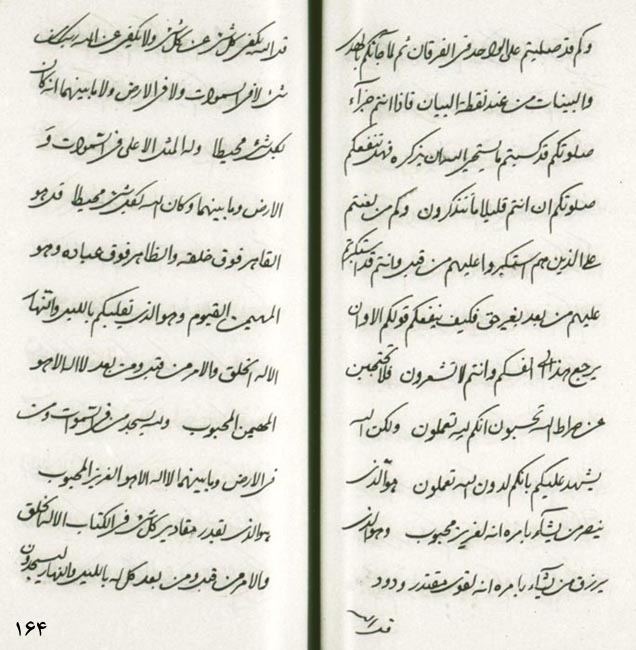 وكم قد صليتم على الواحد فى الفرقان ثم لما جائكم بالهدى
والبينات من عند نقطة البيان فاذا انتم جزآء
صلوتكم قد كسبتم ما يستحيى اللسان بذكره فهل تنفعكم
صلوتكم ان انتم قليلا ما تتذكرون وكم من لعنتم
على الذين هم استكبروا عليهم من قبل وانتم قد استكبرتم
عليهم من بعد بغير حق فكيف ينفعكم قولكم الا وان
يرجع هذا الى انفسكم وانتم لا تشعرون فلا تحتجبن
عن صراط الله تحسبون انكم لله تعملون ولكن الله
يشهد عليكم بانكم لدون الله تعملون هو الذى
ينصر من يشآء بامره انه لعزيز محبوب وهو الذى
يرزق من يشآء بامره انه لقوى مقتدر ودود
قل الله
قل الله يكفى كل شئ عن كل شئ ولا يكفى عن الله ربك من
شئ لا فى السموات ولا فى الارض ولا ما بينهما انه كان
بكل شئ محيطا وله المثل الاعلى فى السموات و
الارض وما بينهما وكان الله بكل شئ محيطا قل هو
القاهر فوق خلقه والظاهر فوق عباده وهو
المهيمن القيوم وهو الذى يقلبكم بالليل والنهار
الا له الخلق والامر من قبل ومن بعد لا اله الا هو
المهيمن المحبوب ولله يسجد من فى السموات ومن
فى الارض وما بينهما لا اله الا هو العزيز المحبوب
هو الذى يقدر مقادير كل شئ فى الكتاب الا له الخلق
والامر من قبل ومن بعد كل له بالليل والنهار ليسجدون
۱۶۴